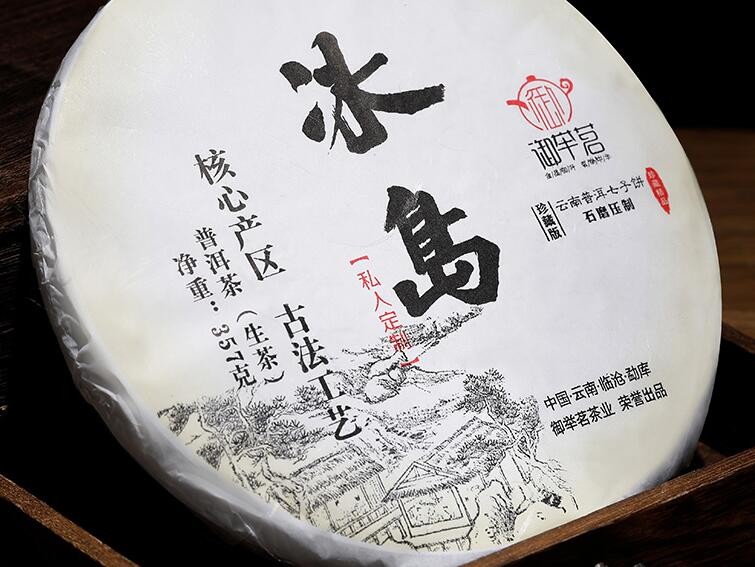 冰島
御举茗
珍藏版
云南普洱七子饼
石磨压制
珍藏精品
【私人定制】
核心产区 古法工艺
普洱茶（生茶）
净重：357克
中国·云南·临沧·勐库
御举茗茶业 荣誉出品